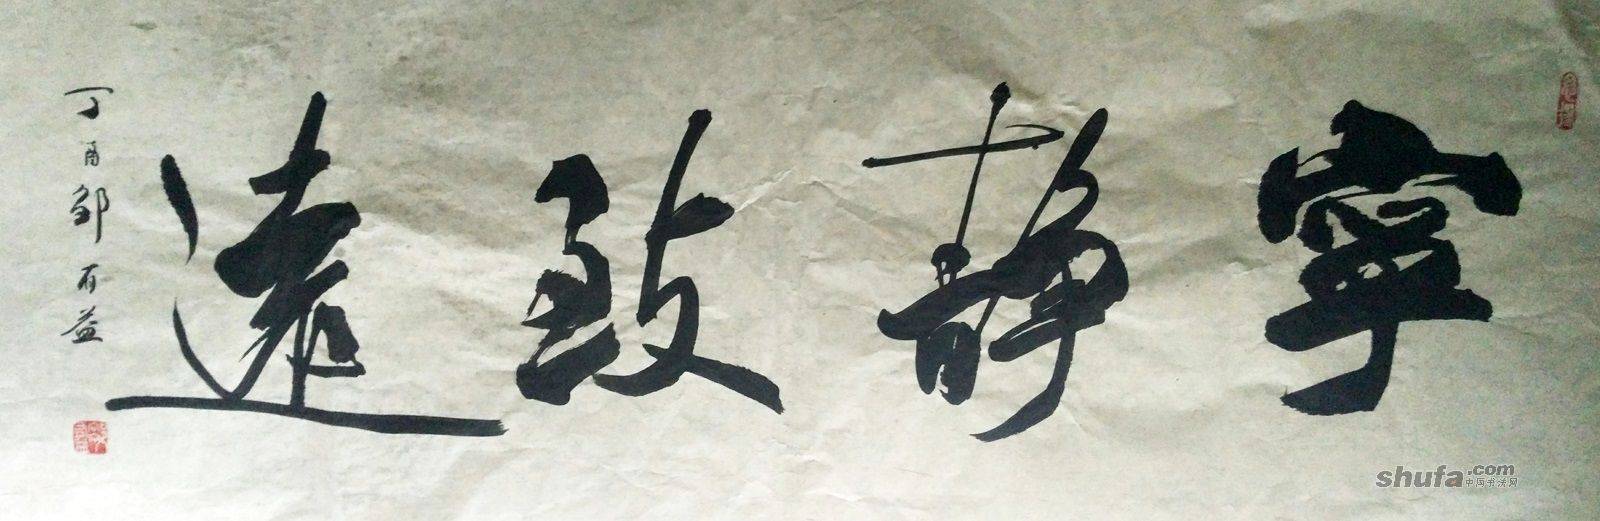 寧靜致遠
丁酉鄒有益
shufa.com
中国书法网